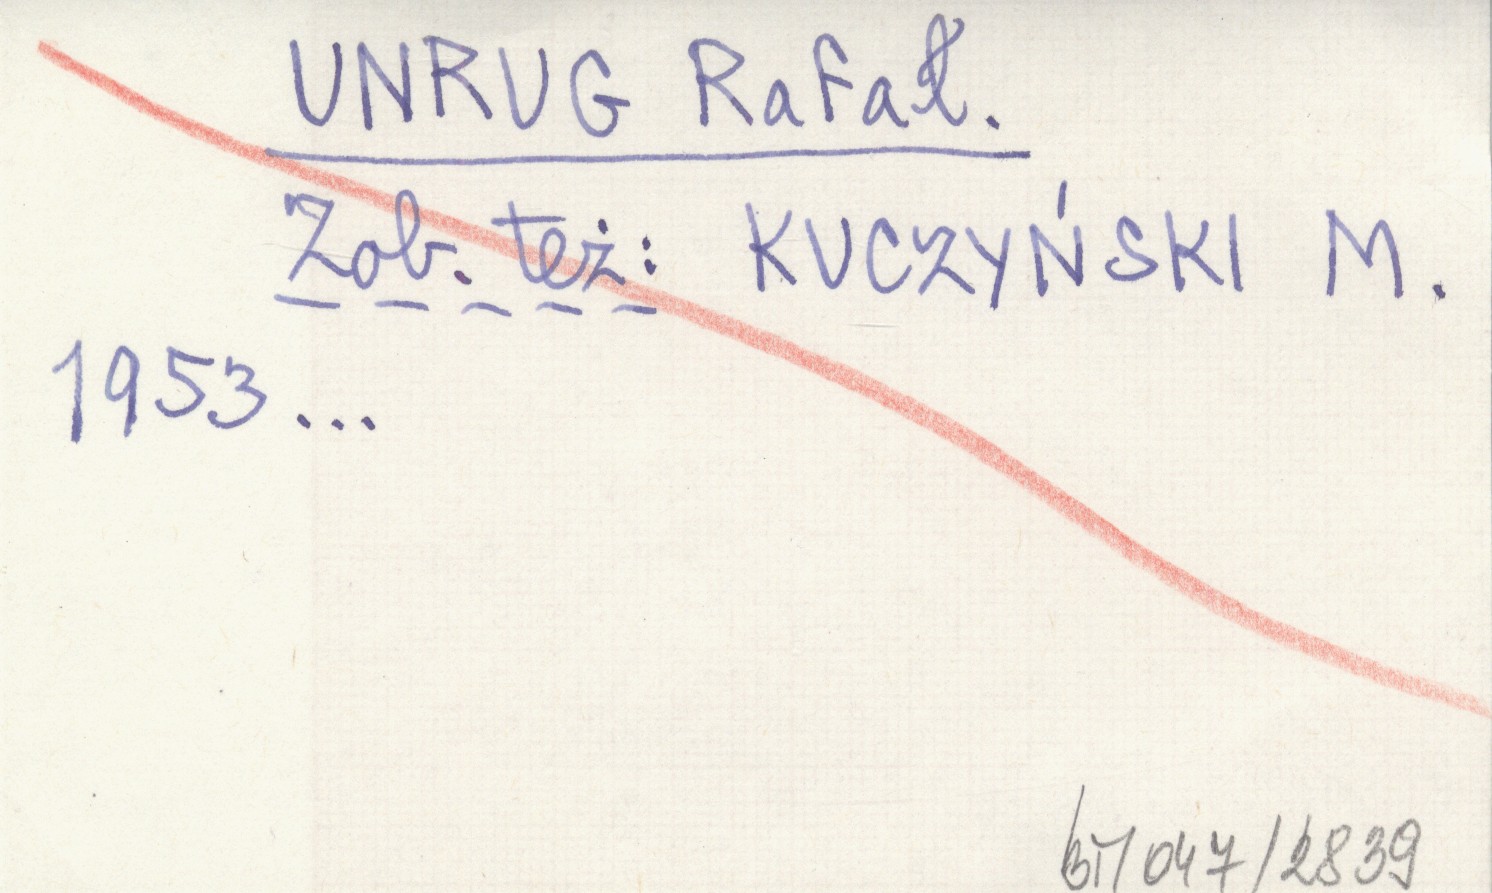 UNRUG Rafał.
Zob. też: KUCZYŃSKI M.
1953...
047/2839